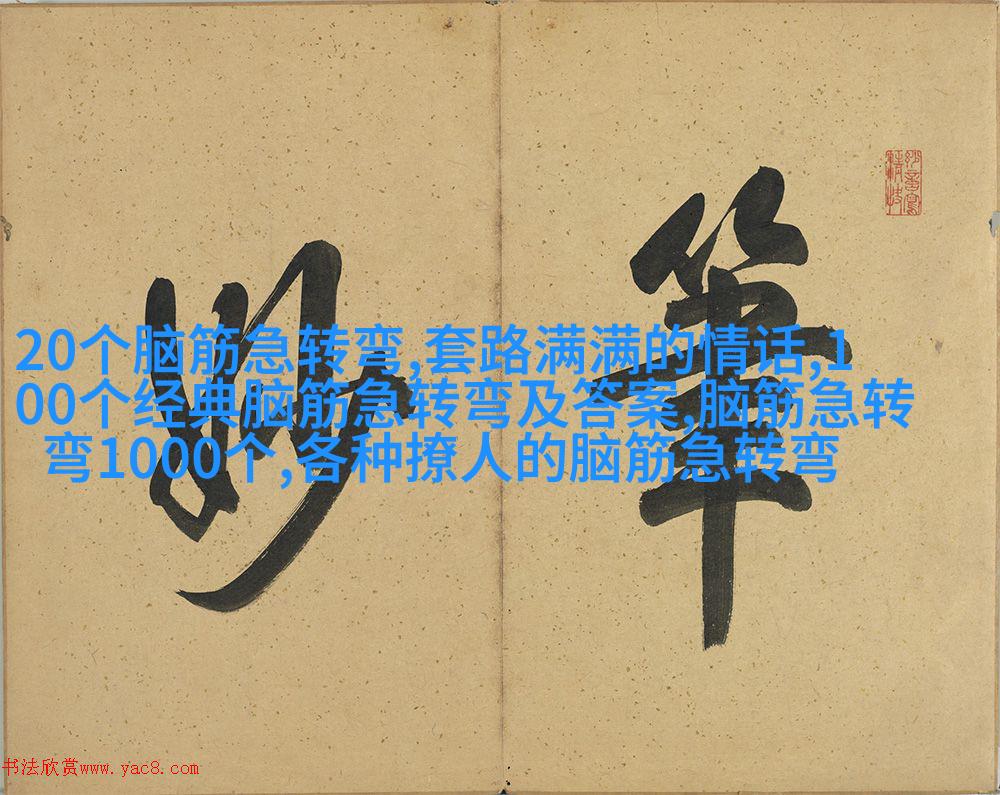 筆
妙
20个脑筋急转弯,套路满满的情话,1
00个经典脑筋急转弯及答案,脑筋急转
弯1000个,各种撩人的脑筋急转弯
书法欣赏www.yac8.com